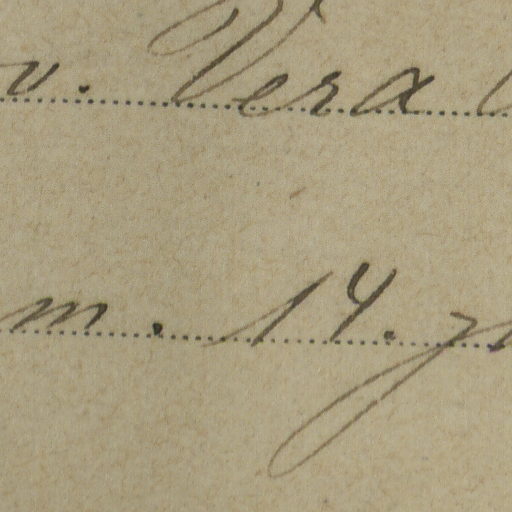 v. Vera
m. 14.